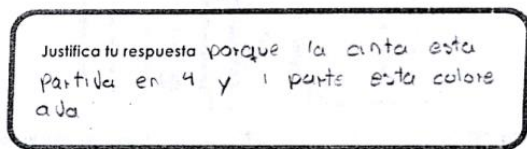 Justifica tu respuesta porque la cinta esta
partida en 4 y 1 parte esta colore
ada